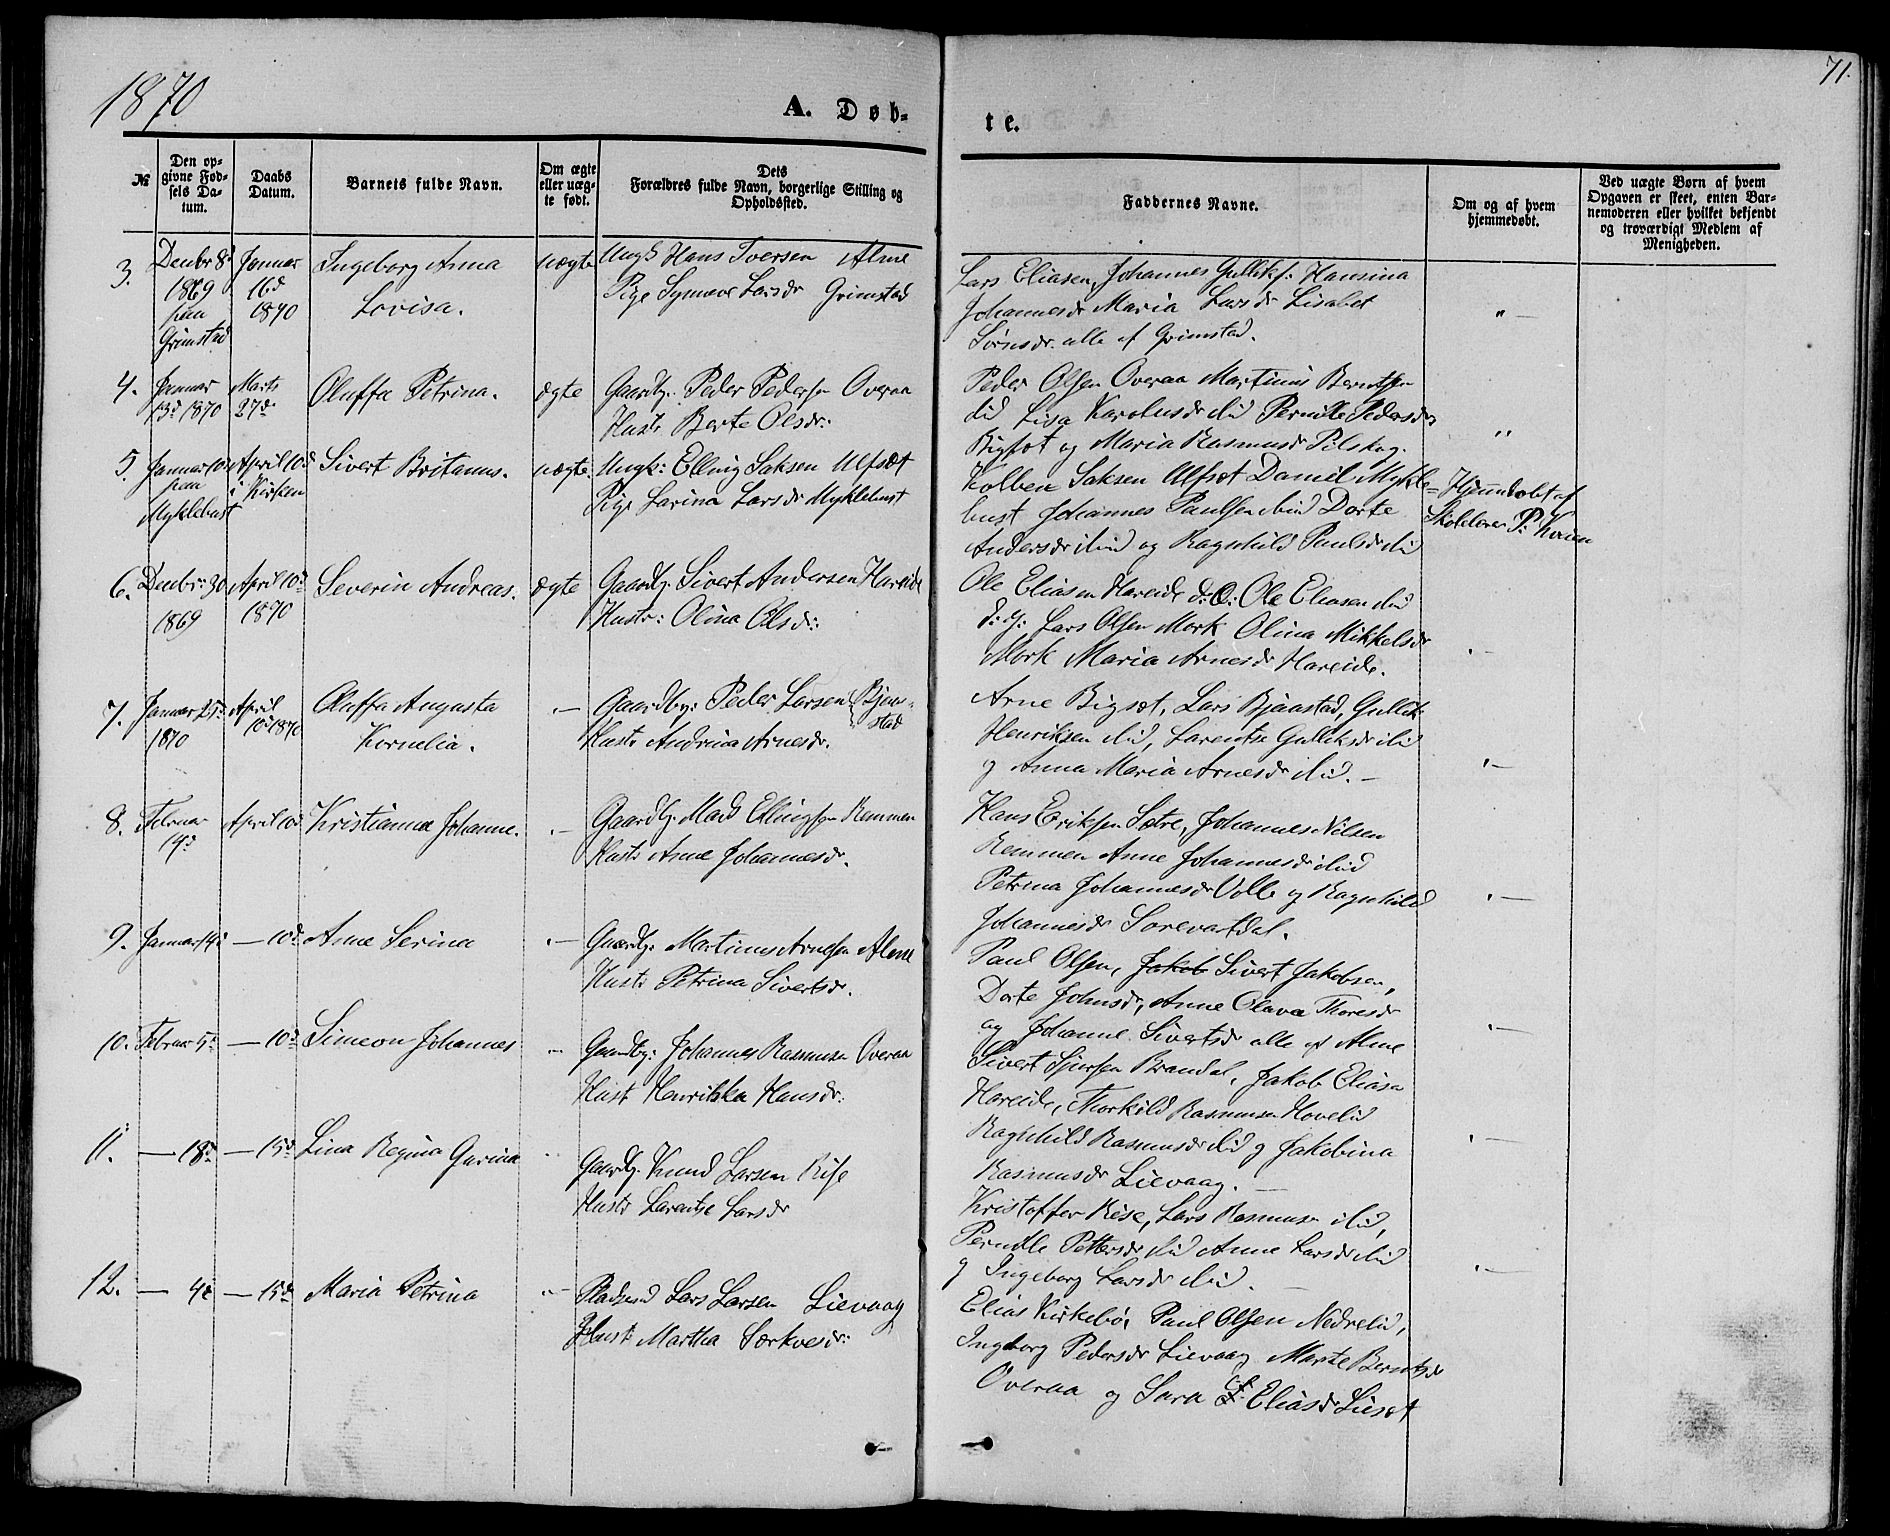 1870
A. Døb-
te.
71.
№
Den op-
givne Fød-
sels Da-
tum.
Daabs
Datum.
Barnets fulde Navn.
Om ægte
eller uæg-
te født.
Dets
Forældres fulde Navn, borgerlige Stilling og
Opholdssted.
Faddernes Navne.
Om og af hvem
hjemmedøbt.
Ved uægte Børn af hvem
Opgaven er skeet, enten Bar-
nemoderen eller hvilket bekjendt
og troværdigt Medlem af
Menigheden.
3.
Decbr 8d
1869
paa
Grimstad
Januar
16d
1870
Ingeborg Anna
Lovisa.
uægte
Ungk Hans Iversen Alme
Pige Synneve Larsdr Grimstad
Lars Eliasen, Johannes Gulliks: Hansina
Johannesdr Maria Larsdr Lisabet
alle af Grimstad.
4.
Januar
13d 1870
Marts
27d
Oluffa Petrina.
ægte
Gaardbr. Peder Pedersen Overaa
Hustr Berte Olsdr:
Peder Olsen Overaa Martinus Berntsen
ibid Lisa Karolusdr ibid Pernille Pedersdr
Bigset og Maria Rasmusdr Pilskog.
5
Januar 10d
paa
Myklebust
April 10d
i Kirken
Sivert Britanus.
uægte.
Ungk: Elling Saksen Ulfsæt
Pige Larina Larsdr Myklebust
Kolben Saksen Ulfsæt Daniel Mykle-
bust Johannes Paulsen ibid Dorte
Andersdr ibid og Ragnhild Paulsdr ibid
Hjemdøbt af
Skolelærer P: Kvien
6.
Decbr: 30
1869
April 10d
1870
Severin Andreas.
ægte
Gaardbr. Sivert Andersen Hareide
Hustr: Olina Olsdr:
Ole Eliasen Hareide d: Æ: Ole Eliasen ibid
d: y: Lars Olsen Mork Olina Mikkelsdr
Mork Maria Arnesdr Hareide.
7.
Januar 25d
1870
April
10d 1870
Oluffa Augusta
Kornelia.
Gaardbr: Peder Larsen Bjaa-
stad
Hustr Andrina Arnesdr.
Arne Bigset, Lars Bjaastad, Gullik
Henriksen ibid, Larentse Gulliksdr ibid
og Anna Maria Arnesdr ibid. —
8.
Februar
19d
April 10d
Kristianna Johanne.
Gaardbr. Mads Ellingsen Remmen
Hustr Anne Johannesdr.
Hans Eriksen Sætre, Johannes Nilsen
Remmen Anne Johannesdr ibid
Petrina Johannesdr Volle og Ragnhild
Johannesdr Sorevartdal.
9.
Januar 14d
— 10d
Anne Serina
Gaardbr. Martinus Arnesen Alme
Hustr Petrina Sivertsdr.
Paul Olsen, Jakob Sivert Jakobsen,
Dorte Johnsdr, Anne Olava Thoresdr
og Johanne Sivertsdr alle af Alme
10.
Februar 5d
— 10d
Simeon Johannes
Gaardbr: Johannes Rasmusen Overaa
Hust Henrikka Hansdr:
Sivert Sjursen Brandal, Jakob Eliasen
Hareide, Thorkild Rasmusen Hovelid
Ragnhild Rasmusdr ibid og Jakobina
Rasmusdr Lievaag. —
11.
— 18d
— 15d
Lina Regina Gurina
Gaardbr. Knud Larsen Rise
Hustr Larentse Larsdr
Kristoffer Rise, Lars Rasmusen ibid,
Pernille Pettersdr ibid Anne Larsdr ibid
og Ingeborg Larsdr ibid. —
12.
— 4d
— 15d
Maria Petrina
Pladsmd Lars Larsen Lievaag
Hustr Martha Særkvesdr:
Elias Kirkebø, Paul Olsen Nedrelid,
Ingeborg Pedersdr Lievaag Marte Berntsdr
Overaa og Sara Eliasdr Liaset